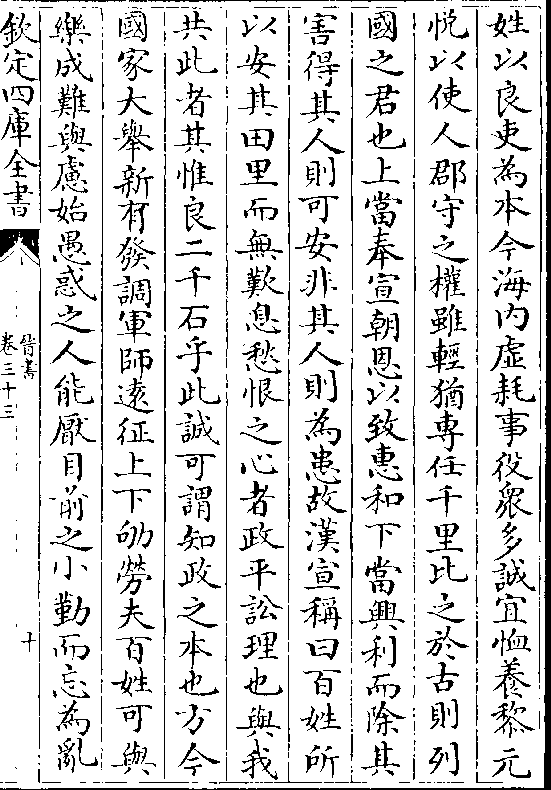 姓以良吏為本今海内虛耗事役衆多誠宜恤養黎元
悦以使人郡守之權雖輕猶專任千里比之於古則列
國之君也上當奉宣朝恩以致惠和下當興利而除其
害得其人則可安非其人則為患故漢宣稱曰百姓所
以安其田里而無歎息愁恨之心者政平訟理也與我
共此者其惟良二千石乎此誠可謂知政之本也方今
國家大舉新有發調軍師逺征上下劬勞夫百姓可與
樂成難與慮始愚惑之人能厭目前之小勤而忘為亂
欽定四庫全書
晉書
卷三十三
十